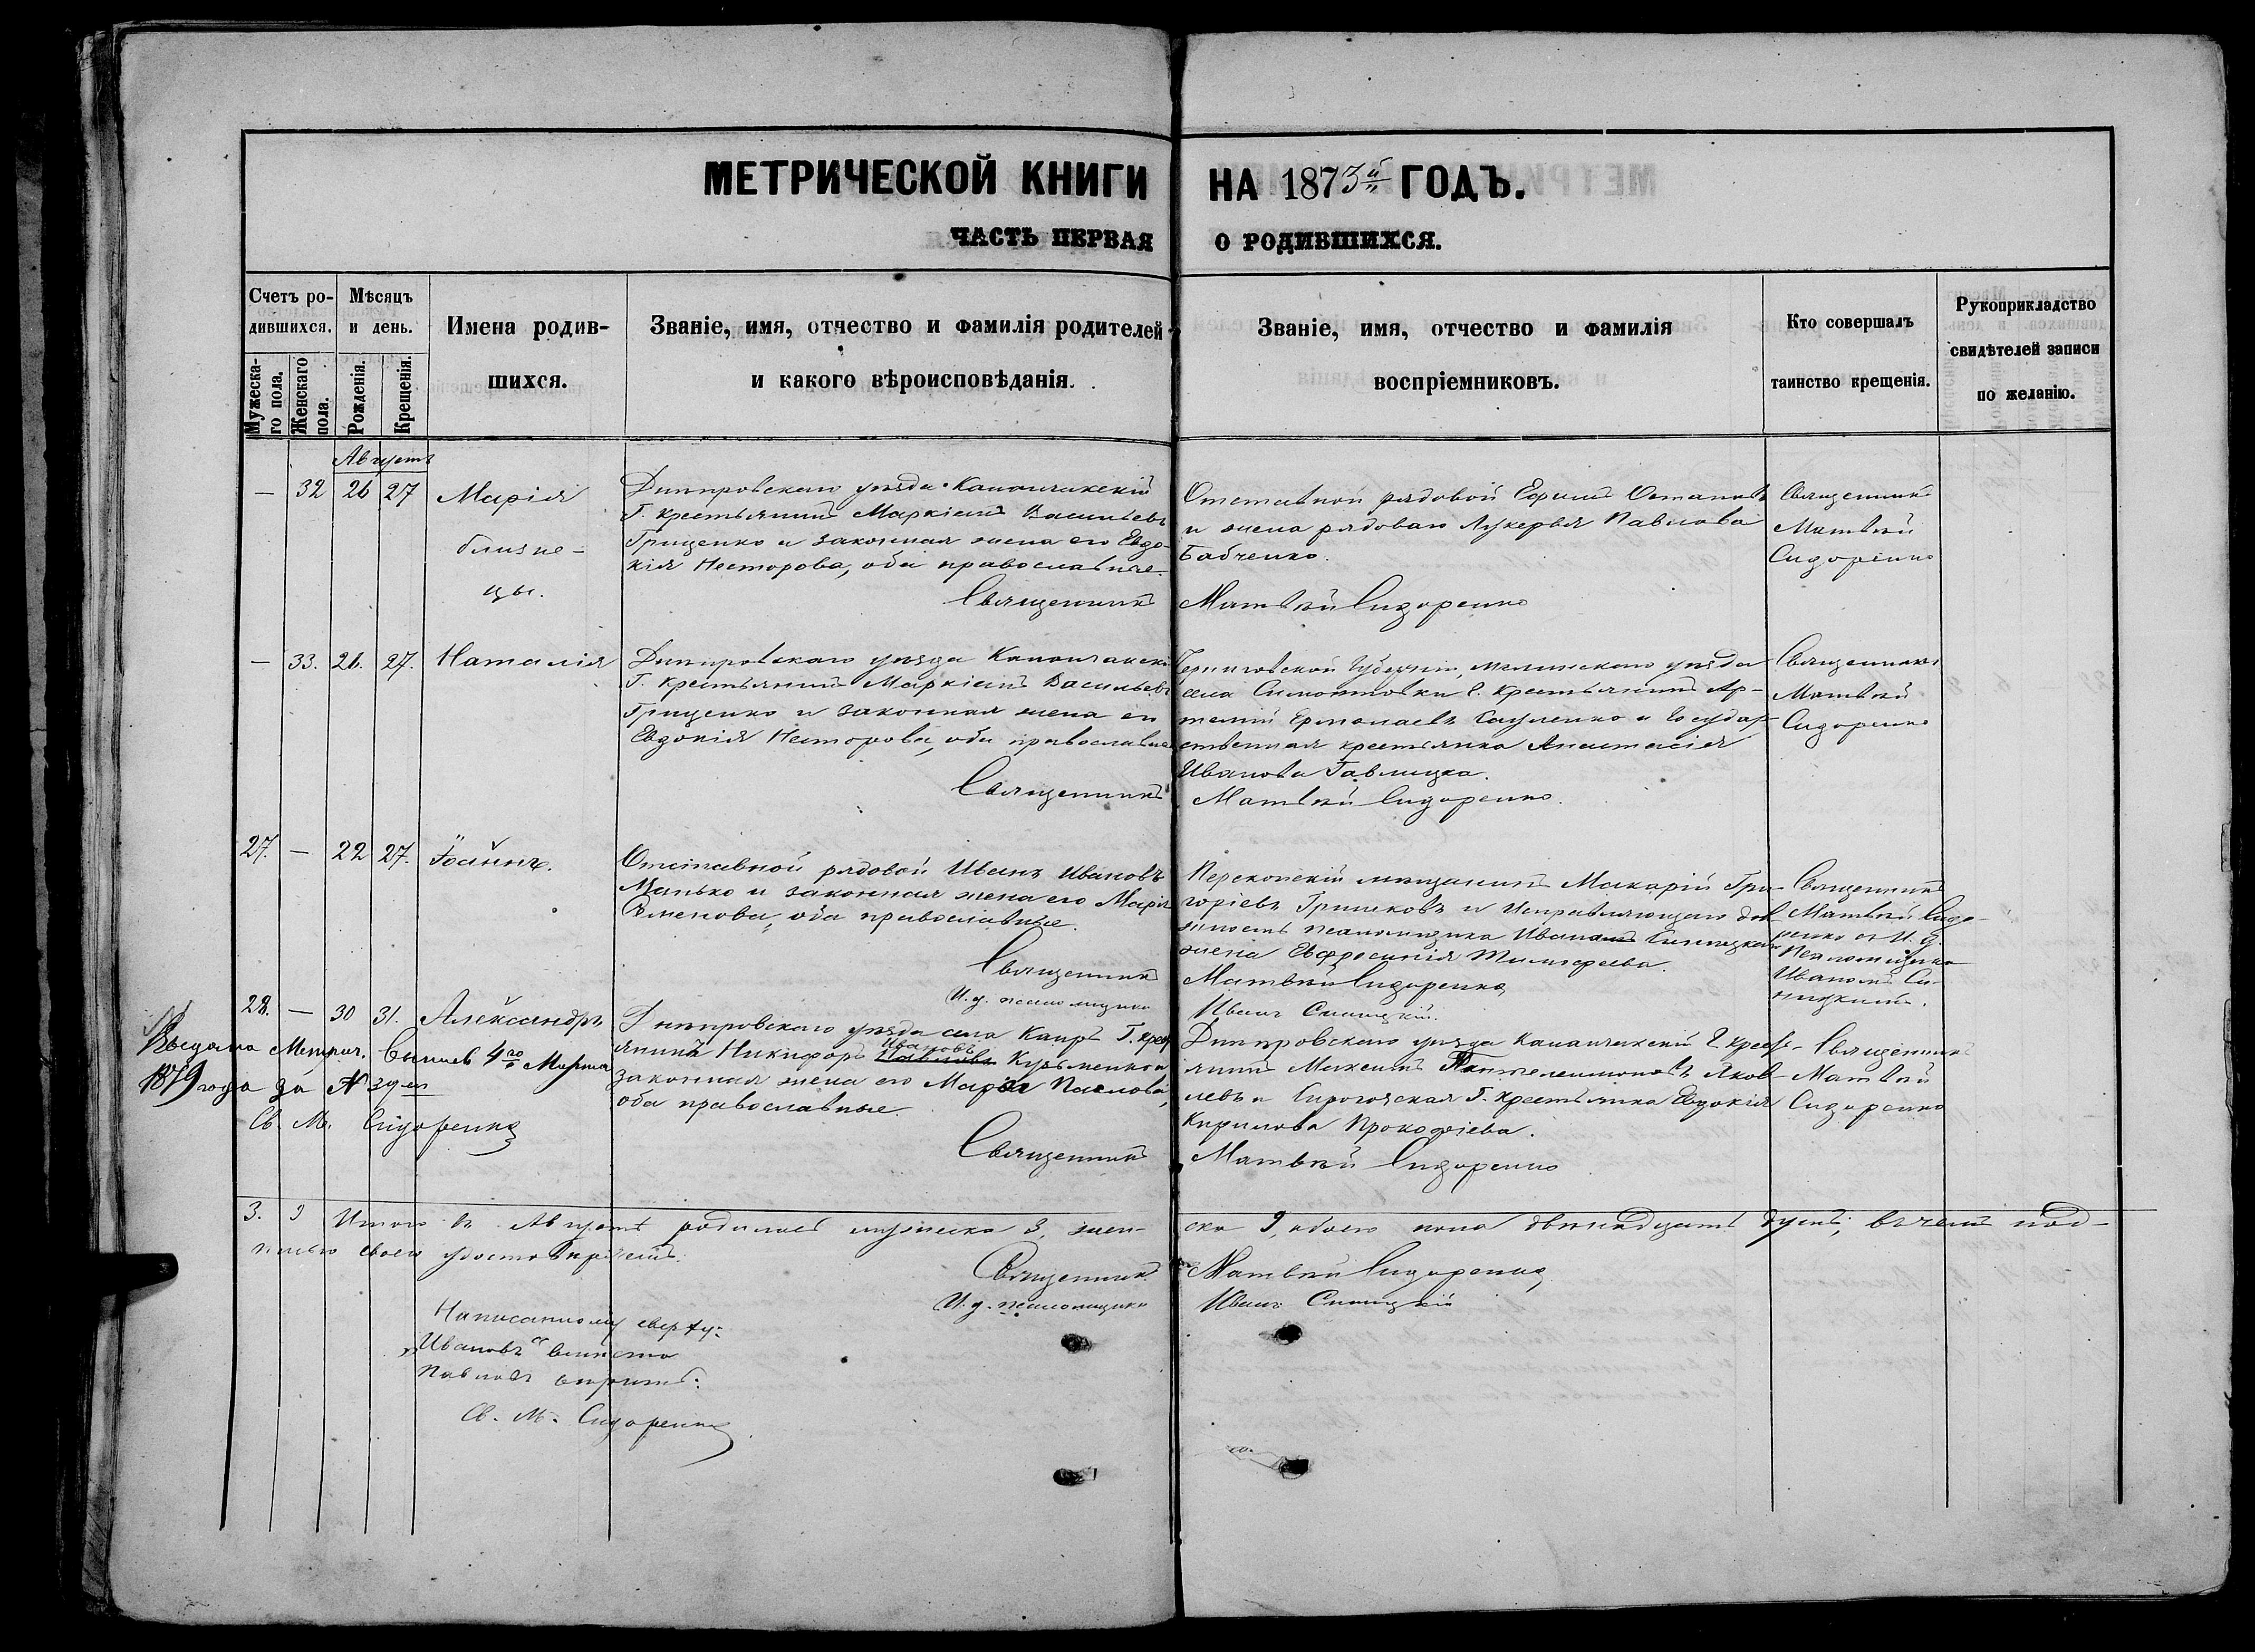 МЕТРИЧЕСКОЙ КНИГИ НА 1873й ГОДЪ.
ЧАСТЬ ПЕРВАЯ О РОДИВШИХСЯ.
Счетъ ро-
дившихся.
Мужеска-
го пола.
Женскаго
пола.
Мѣсяцъ
и день.
Рожденія.
Крещенія.
Имена родив-
шихся.
Званіе, имя, отчество и фамилія родителей
и какого вѣроисповѣданія.
Званіе, имя, отчество и фамилія
воспріемниковъ.
Кто совершалъ
таинство крещенія.
Рукоприкладство
свидѣтелей записи
по желанію.
Августъ
— 32 26 27 Марія
близне-
цы.
Днѣпровскаго уѣзда Каланчакскій
Г. крестьянинъ Маркіанъ Васильевъ
Грищенко и законная жена его Евдо-
кія Несторова, оба православные.
Отставной рядовой Ефимъ
и жена рядоваго Лукерья Павлова
Бабченко.
Священникъ
Матвѣй
Сидоренко
Священникъ Матвѣй Сидоренко
— 33. 26. 27. Наталія
Днѣпровскаго уѣзда Каланчакскій
Г. крестьянинъ Маркіанъ Васильевъ
Грищенко и законная жена его
Евдокія Несторова, оба православные
Черниговской Губерніи, Мглинскаго уѣзда
села Симонтовки Г. крестьянинъ Ар-
темій Ермолаевъ Сауленко и Государ-
ственная крестьянка Анастасія
Иванова Гавлицка.
Священникъ
Матвѣй
Сидоренко
Священникъ Матвѣй Сидоренко.
27. — 22 27. Іоаннъ.
Отставной рядовой Иванъ Ивановъ
Манько и законная жена его Марія
Семенова, оба православные.
Перекопскій мѣщанинъ Макарій Гри-
горіевъ Гришковъ и Исправляющаго дол-
жность псаломщика Ивана Синицкаго
жена Евфросинія Тимофеева.
Священникъ
Матвѣй Сидо-
ренко съ И. д.
Псаломщика
Иваномъ Си-
ницкимъ.
Священникъ Матвѣй Сидоренко
И. д. псаломщика Иванъ Синицкій.
28. — 30 31. Александръ
Днѣпровскаго уѣзда села Каиръ Г. крест
янинъ Никифоръ Ивановъ Павловъ Кузьменко и
законная жена его Марія Павлова,
оба православные
Днѣпровскаго уѣзда Каланчакскій Г. кресть-
янинъ Максимъ Пантелеимоновъ Яков-
левъ и Серогозская Г. крестьянка Евдокія
Кирилова Прокофіева.
Священникъ
Матвѣй
Сидоренко
Выдана Метрич. Выпись 4го Марта
1879 года за № 39-мъ
Св. М. Сидоренко
Священникъ Матвѣй Сидоренко
3. 9 Итого въ Августѣ родилось мужеска 3, жен-
ска 9, обоего пола двѣнадцать душъ; въ чемъ под-
писью своею удостовѣряемъ.
Священникъ Матвѣй Сидоренко
И. д. псаломщика Иванъ Синицкій
Написанному сверху:
„Ивановъ“ вмѣсто
Павловъ вѣрить:
Св. М. Сидоренко